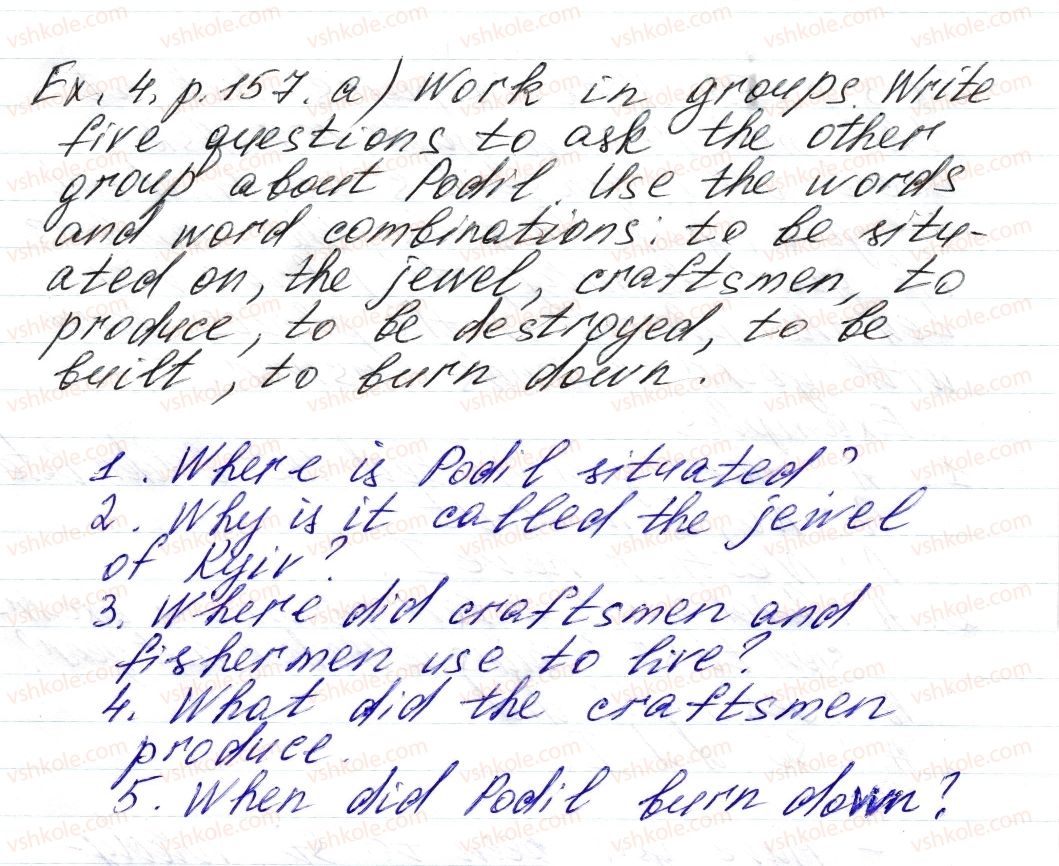 Ex. 4, p. 157. a) Work in groups. Write
five questions to ask the other
group about Podil. Use the words
and word combinations: to be situ-
ated on, the jewel, craftsmen, to
produce, to be destroyed, to be
built, to burn down.
1. Where is Podil situated?
2. Why is it called the jewel
of Kyiv?
3. Where did craftsmen and
fishermen use to live?
4. What did the craftsmen
produce.
5. When did Podil burn down?